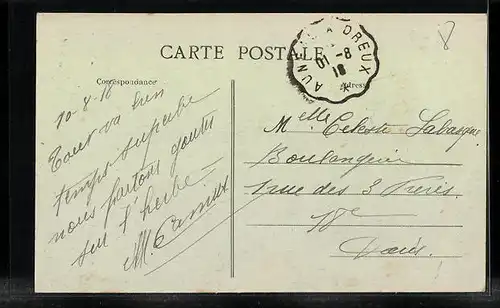 CARTE POSTALE
AUNEAU A DREUX
8
01 -8
18
Correspondance
Adresse
10-8-18
Tout va bien
temps superbe
nous partons gouter
sur l'herbe -
M.
Melle Celeste
Boulangerie
rue des 3 Freres
18e
Paris.